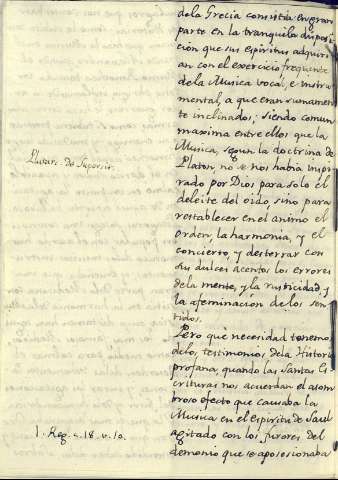 de la Grecia consistia en gran
parte en la tranquila disposi
cion que sus espiritus adquiri
an con el exercicio frequente
de la Musica vocal, e instru
mental, a que eran sumamen
te inclinados; siendo comun
maxima entre ellos que la
Musica, segun la doctrina de
Platon, no se nos habia inspi
rado por Dios para solo el
deleite del oido, sino para
restablecer en el animo el
orden, la harmonia, y el
concierto, y desterrar con
sus dulces acentos los errores
de la mente, y la rusticidad y
la afeminacion de los sen
tidos.
Plutarc. De Superstit.
Pero què necesidad tenemos
de los testimonios de la Historia
profana, quando las Santas Es
crituras nos acuerdan el asom
broso efecto que causaba la
Musica en el espiritu de Saul
agitado con los furores del
demonio que se aposesionaba
1. Reg. c. 18. v. 10.